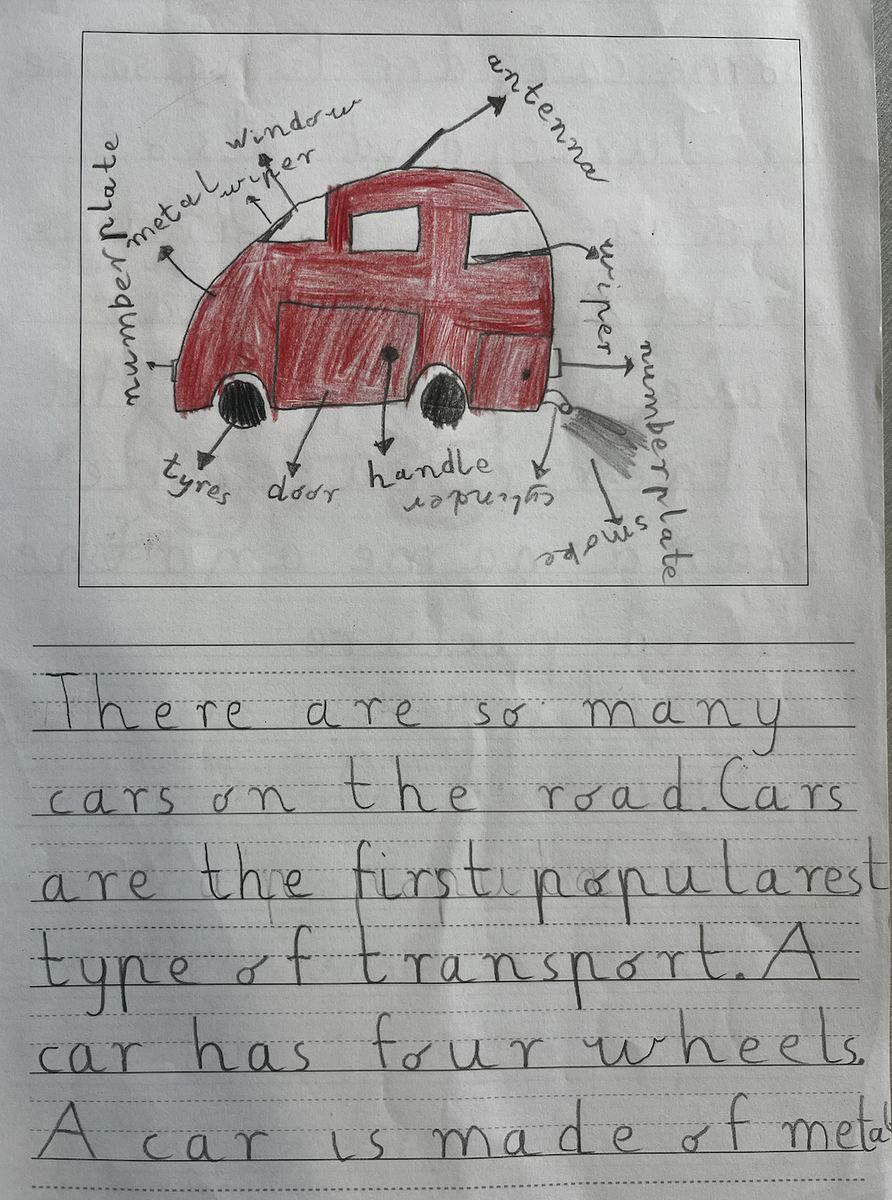 antenna
window
wiper
metal
numberplate
wiper
numberplate
tyres
door
handle
cylinder
smoke
There are so many
cars on the road. Cars
are the first popularest
type of transport. A
car has four wheels.
A car is made of metal